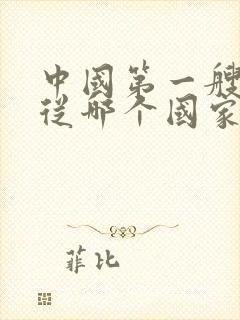 中國第一艘
從哪个國家
菲比